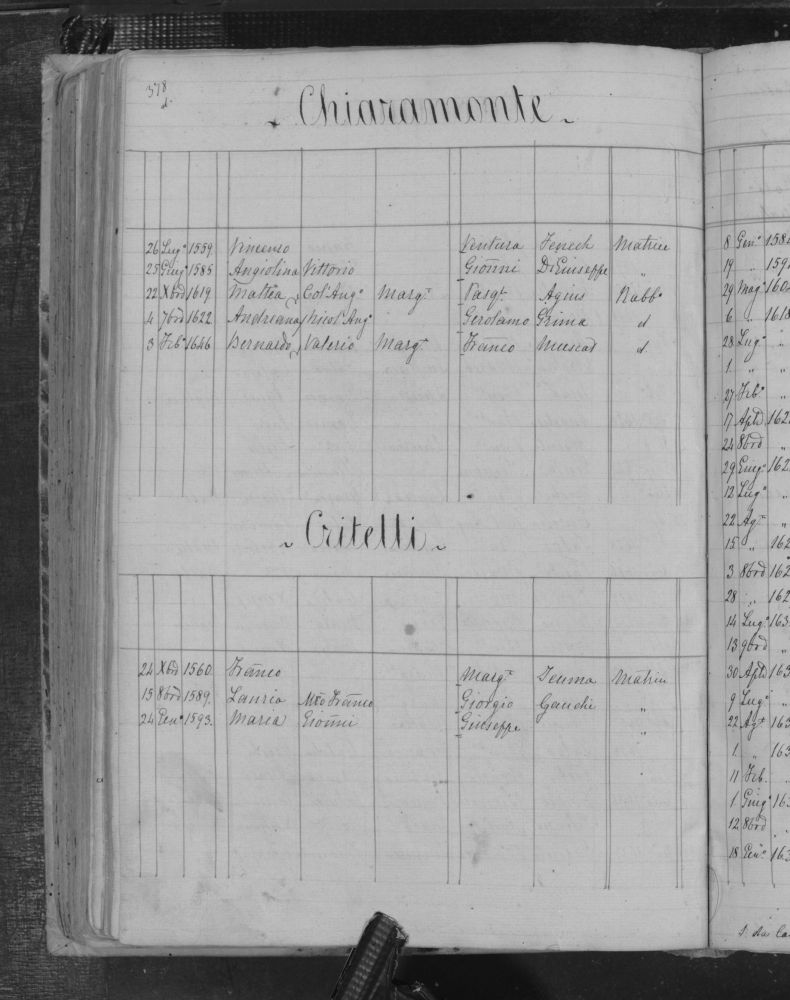 378
d.
Chiaramonte
26 Lug.º 1559. Vincenso Ventura Fenech Matrice
25 Giug.º 1585 Angiolina Vittorio Gioñni DiGiuseppe "
22 Xbrd 1619 Mattea Col.ª Ang.º Marg.ta Pasq.l Agius Rabb.º
4 7brd 1622 Andreana Nicol.ª Ang.º Gerolamo Grima d
3 Feb.º 1646 Bernardo Valerio Marg.ta Frañco Muscat d.
Critelli
24 Xbrd 1560. Frañco Marg.ta Matrice
15 8brd 1589. Lauria Mro Frañco Giorgio Gauchi "
24 Gen.º 1593. Maria Gioñni Giuseppe "
8 Gen.º 158
19 " 159
29 Mag.º 160
6 " 1618
28 Lug.º "
1 " "
27 Feb.º "
17 Aple 162
24 8brd "
29 Giug.º 162
12 Lug.º "
22 Ag.t "
15 " 162
3 8brd 162
28 " 162
14 Lug.º 163
13 9brd "
30 Aple 163
9 Lug.º "
22 Ag.t 163
1 " 163
11 Feb. "
1 Giug.º 163
12 8brd "
18 Gen.º 163